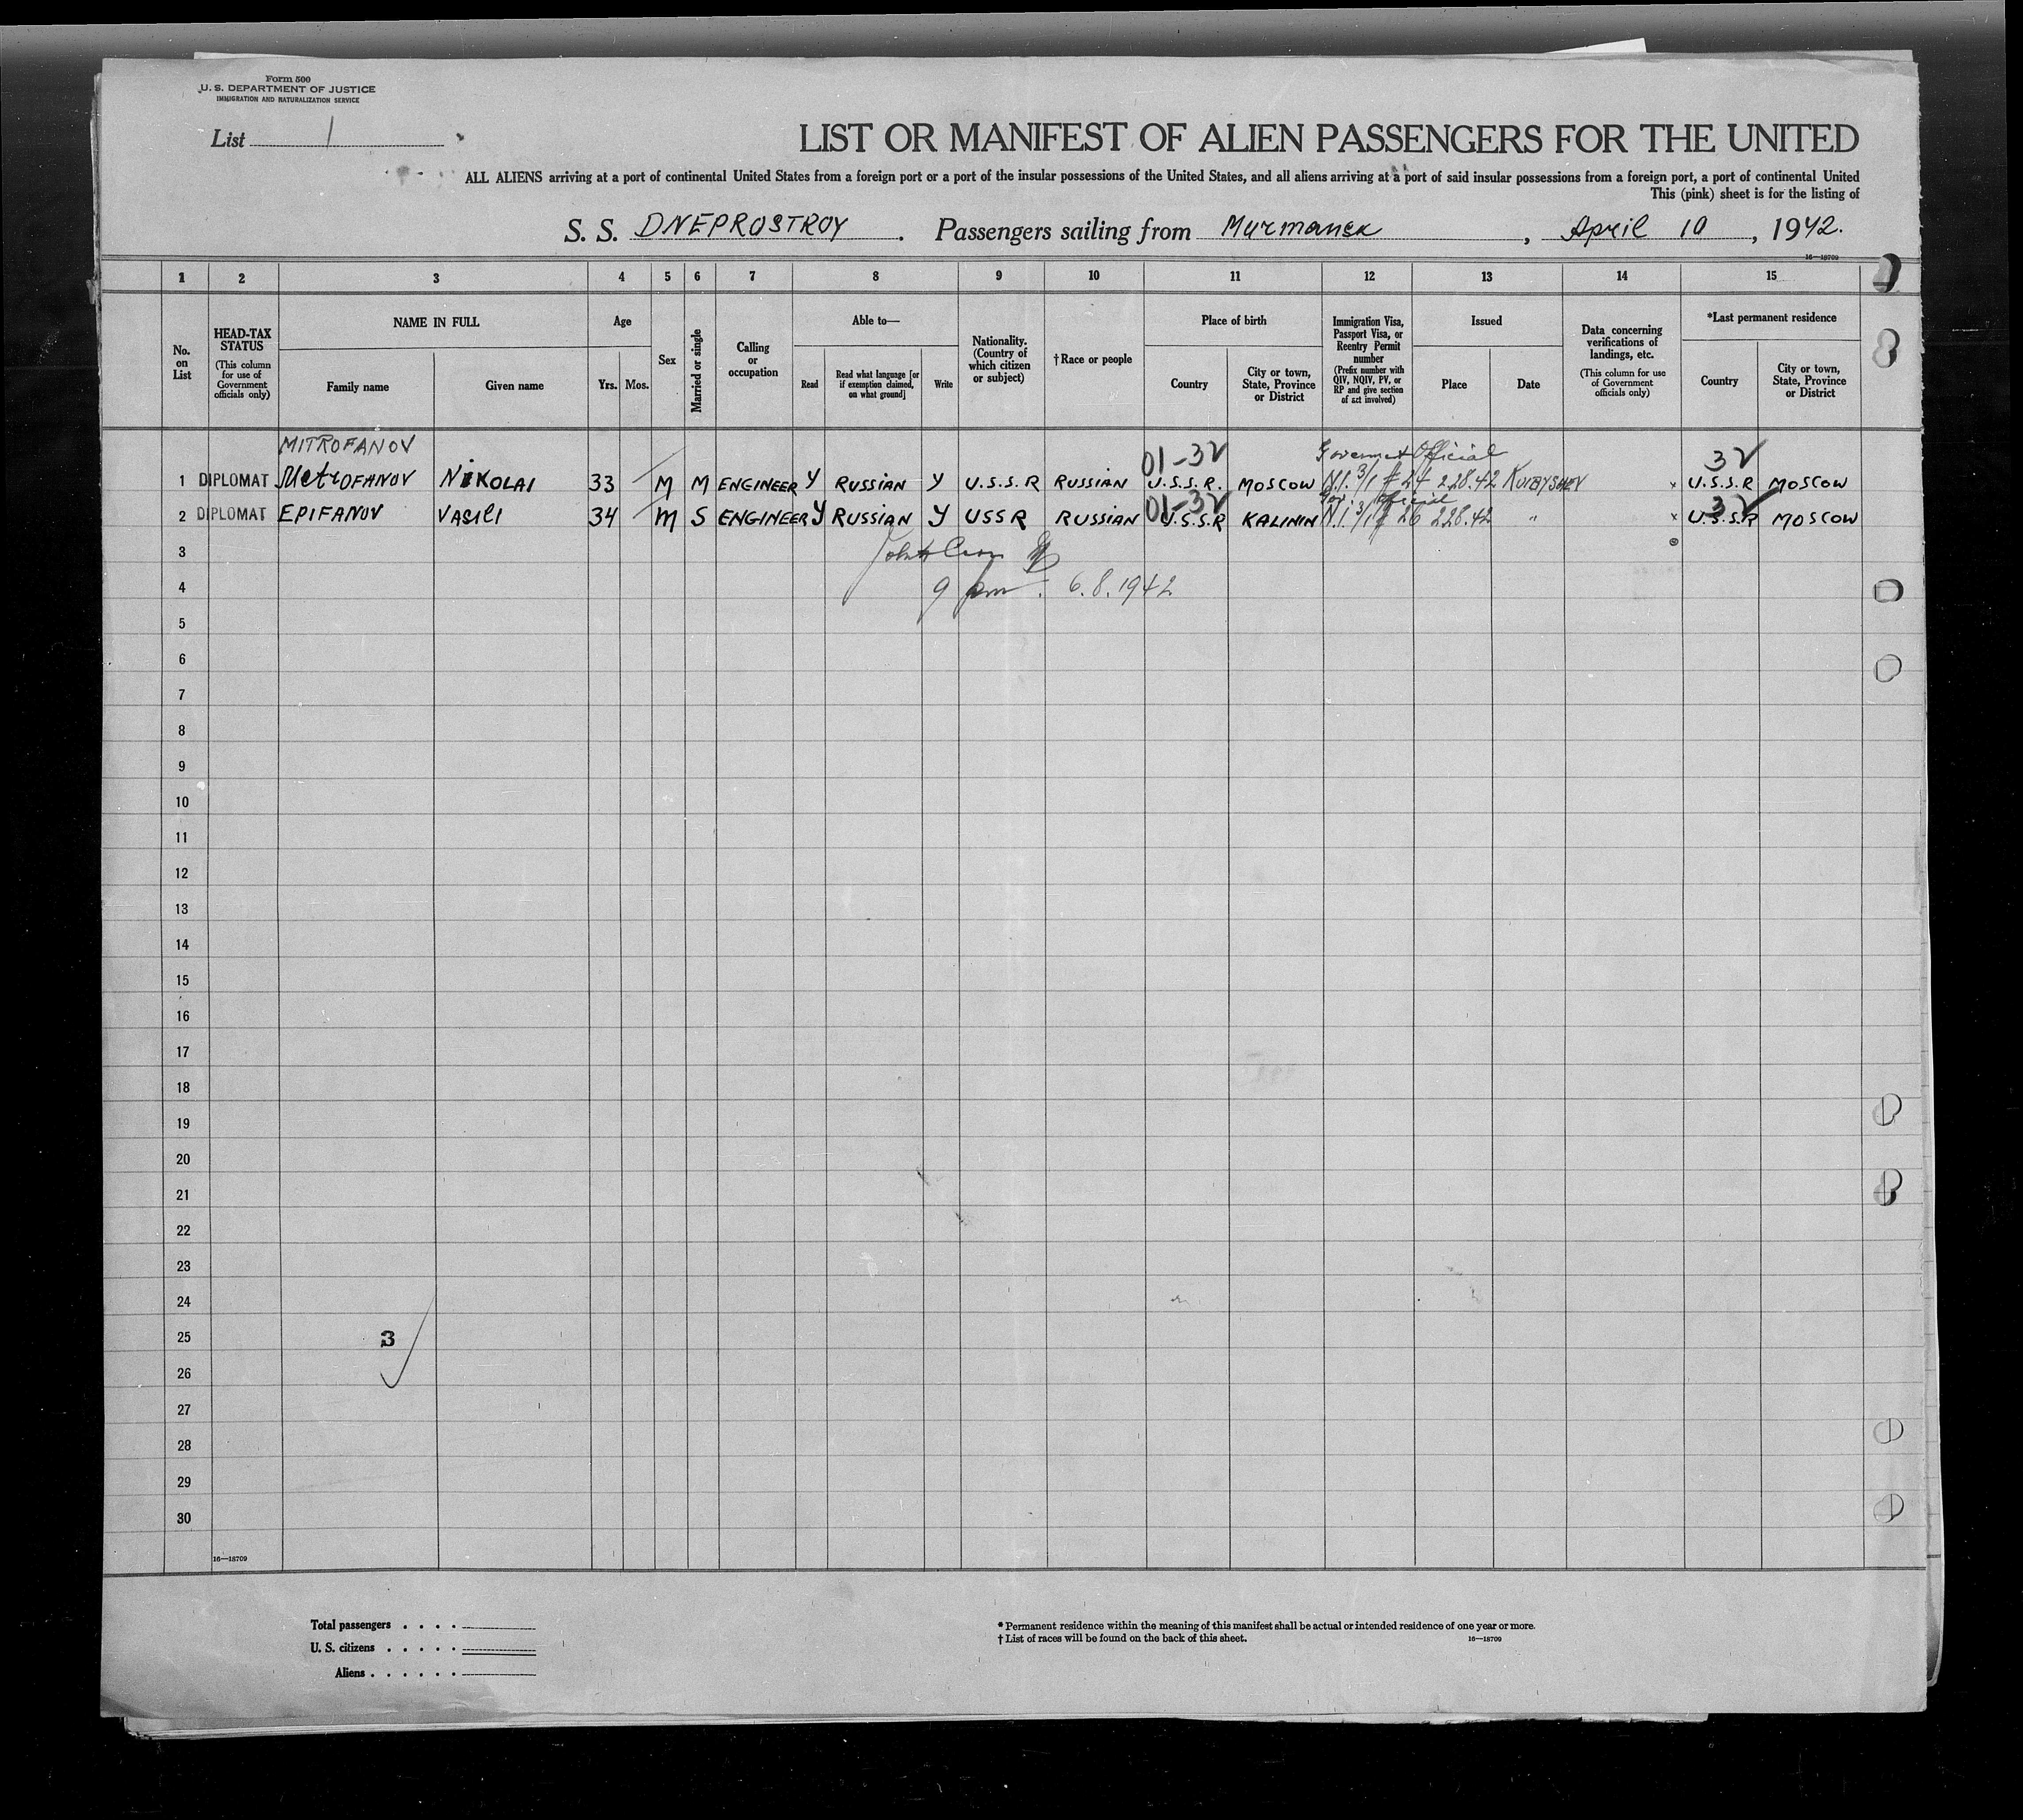 Form 500
U. S. DEPARTMENT OF JUSTICE
IMMIGRATION AND NATURALIZATION SERVICE
List 1
LIST OR MANIFEST OF ALIEN PASSENGERS FOR THE UNITED
ALL ALIENS arriving at a port of continental United States from a foreign port or a port of the insular possessions of the United States, and all aliens arriving at a port of said insular possessions from a foreign port, a port of continental United
This (pink) sheet is for the listing of
S. S. DNEPROSTROY . Passengers sailing from Murmansk , April 10 , 1942.
16—18709
1 2 3 4 5 6 7 8 9 10 11 12 13 14 15
No. on List
HEAD-TAX STATUS
(This column for use of Government officials only)
NAME IN FULL
Family name Given name
Age
Yrs. Mos.
Sex
Married or single
Calling or occupation
Able to—
Read
Read what language [or if exemption claimed, on what ground]
Write
Nationality. (Country of which citizen or subject)
†Race or people
Place of birth
Country
City or town, State, Province or District
Immigration Visa, Passport Visa, or Reentry Permit number
(Prefix number with QIV, NQIV, PV, or RP and give section of act involved)
Issued
Place Date
Data concerning verifications of landings, etc.
(This column for use of Government officials only)
*Last permanent residence
Country
City or town, State, Province or District
MITROFANOV 01-32 Goverment Official 32
1 DIPLOMAT MetrOFANOV NiKOLAI 33 M M ENGINEER Y RUSSIAN Y U.S.S.R RUSSIAN U.S.S.R. MOSCOW N.I. 3/1 # 24 2.28.42 KUIBYSHEV x U.S.S.R MOSCOW
01-32 Gov. Official 32
2 DIPLOMAT EPIFANOV VASILI 34 M S ENGINEER Y RUSSIAN Y USSR RUSSIAN U.S.S.R KALININ N.I. 3/1 # 26 2.28.42 " x U.S.S.R MOSCOW
3
4 9 pm. 6.8.1942
5
6
7
8
9
10
11
12
13
14
15
16
17
18
19
20
21
22
23
24
25 3
26
27
28
29
30
16—18709
Total passengers . . . .
U. S. citizens . . . . .
Aliens . . . . . .
* Permanent residence within the meaning of this manifest shall be actual or intended residence of one year or more.
† List of races will be found on the back of this sheet.
16—18709